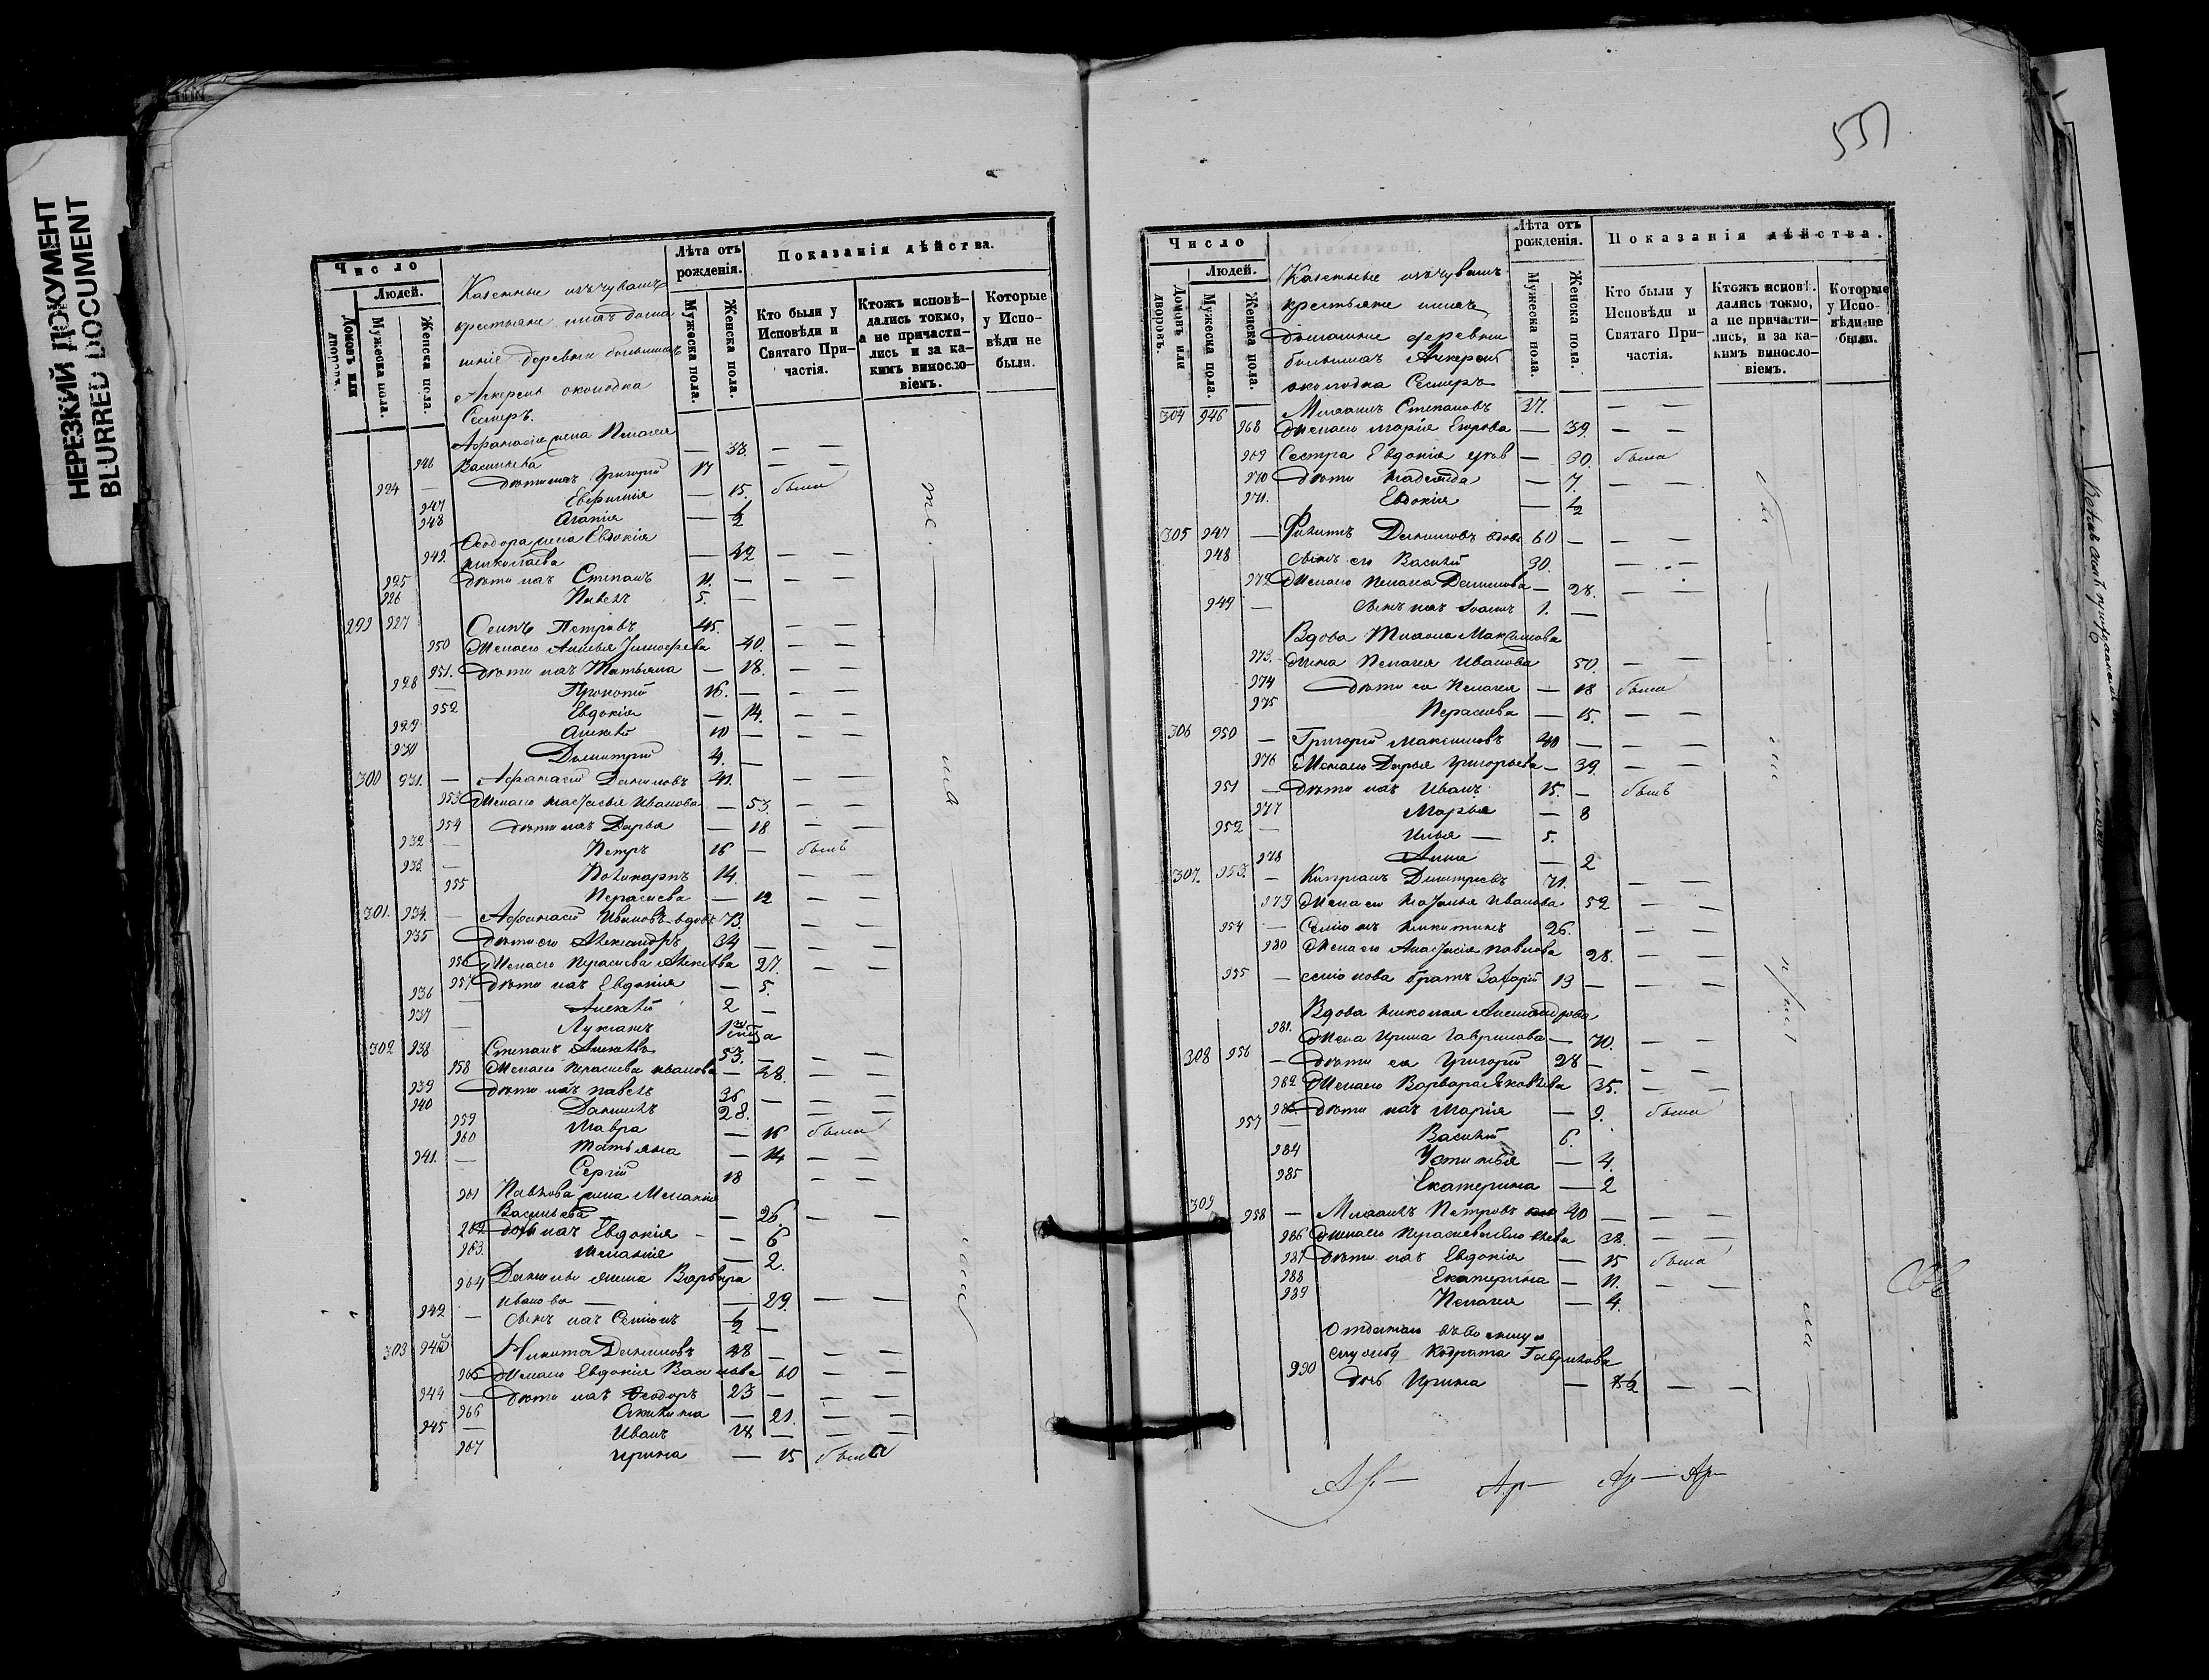 НЕРЕЗКИЙ ДОКУМЕНТ
BLURRED DOCUMENT
Число
Людей.
Домовъ или дворовъ.
Мужеска пола.
Женска пола.
Казенные изъ чувашъ
крестьяне
деревни большихъ
околодка
Сетеръ.
Лѣта отъ рожденія.
Мужеска пола.
Женска пола.
Показанія дѣйства.
Кто были у Исповѣди и Святаго Причастія.
Ктожъ исповѣдались токмо, а не причастились и за какимъ винословіемъ.
Которые у Исповѣди не были.
Афанасія жена Пелагея
946 Васильева — 38. — —
924 — дѣти ихъ Григорій 17 — —
947 Евфимія — 15. была
948 Агапія — ½
Ѳеодора жена Евдокія
949. Николаева — 42 — —
925 дѣти ихъ Степанъ 11. — — —
926 Павелъ 5. —
299 927 Осипъ Петровъ 45. — —
950 Жена его Тимофеева 40. — —
951. дѣти ихъ Татьяна — 18. — —
928 — Прокопій 16. — — —
952 Евдокія — 14. — —
929 Алексѣй 10 — — —
930 Димитрій 4. —
300 931. — Афанасій Даниловъ 41. — —
953 Жена его Настасья Иванова — 53. — —
954 дѣти ихъ Дарья — 18 — —
932 — Петръ 16 — былъ
933 — Поликарпъ 14. — —
955 Парасиева — 12 — —
301. 934. — Афанасій Ивановъ вдовъ 73. — —
935 дѣти его Александръ 34 — — —
956 Жена его Парасиева Алексѣева 27. — —
957 дѣти ихъ Евдокія — 5.
936 — Алексѣй 2 —
937 — Лукіанъ
302 938 — Степанъ Алексѣевъ 53. — — —
958 Жена его Парасиева Иванова — 48. — —
939 дѣти ихъ Павелъ 36 — — —
940 Даниилъ 28. — —
959 Мавра — 16 была
960 Татьяна — 14 — —
941. — Сергій 18 — —
961 Павлова жена Меланія
Васильева — 26. — —
962 дѣти ихъ Евдокія — 6
963. Меланія — 2.
964 Данилы жена Варвара
Иванова — 29. — —
942 — сынъ ихъ Семіонъ ½ —
303 943 Никита Даниловъ 48 — — —
965 Жена его Евдокія Васильева 60 — —
944 — дѣти ихъ Ѳеодоръ 23 — — —
966 Акилина — 21. — —
945 — Иванъ 18 — — —
967 Ирина — 15 была
551
Число
Людей.
Домовъ или дворовъ.
Мужеска пола
Женска пола.
Казенные изъ чувашъ
крестьяне
деревни
большихъ
околодка Сетеръ
Лѣта отъ рожденія.
Мужеска пола.
Женска пола.
Показанія дѣйства.
Кто были у Исповѣди и Святаго Причастія.
Ктожъ исповѣдались токмо, а не причастились, и за какимъ винословіемъ.
Которые у Исповѣди не были.
304 946 Степановъ 37. — —
968 Жена его Марія Егорова — 39. — —
969 Сестра Евдокія — 30. была
970 дѣти Надежда — 7. — —
971. Евдокія — ½
305 947 — Филипъ Даниловъ вдовъ 60 — — —
948 сынъ его Василій 30. — —
972 Жена его Пелагея Данилова — 28. — —
949 — сынъ ихъ Іоаннъ 1. —
Вдова Максимова
973. жена Пелагея Иванова 50. — —
974 дѣти ея Пелагея — 18 была
975 Парасиева — 15. — —
306 950 — Григорій Максимовъ 40 — — —
976 Жена его Дарья Григорьева — 39. — —
951 — дѣти ихъ Иванъ 15. — былъ
977 Марья — 8
952 — Илья — 5.
978 Анна — 2
307. 953. — Кипріанъ Димитріевъ 71. — —
979 Жена его Наталья Иванова 52 — —
954 — Семіонъ Никитинъ 26. — —
980 Жена его Анастасія Павлова 28. — —
955 — семіонова братъ Захарій 13 — — —
Вдова Николая Александрова
981. Жена Ирина Гаврилова — 70. — —
308 956 — дѣти ея Григорій 28 — — —
982 Жена его Варвара Яковлева 35. — —
983 дѣти ихъ Марія — 9. была
957 — Василій 6.
984 Устинья — 4.
985 Екатерина — 2
309 958 — Петровъ 40 — — —
986 Жена его Парасиева 38. — —
987 дѣти ихъ Евдокія — 15 была
988 Екатерина — 11. — —
989 Пелагея — 4.
Отданнаго въ военную
службу Кодрата Гаврилова
990 дочь Ирина — — —